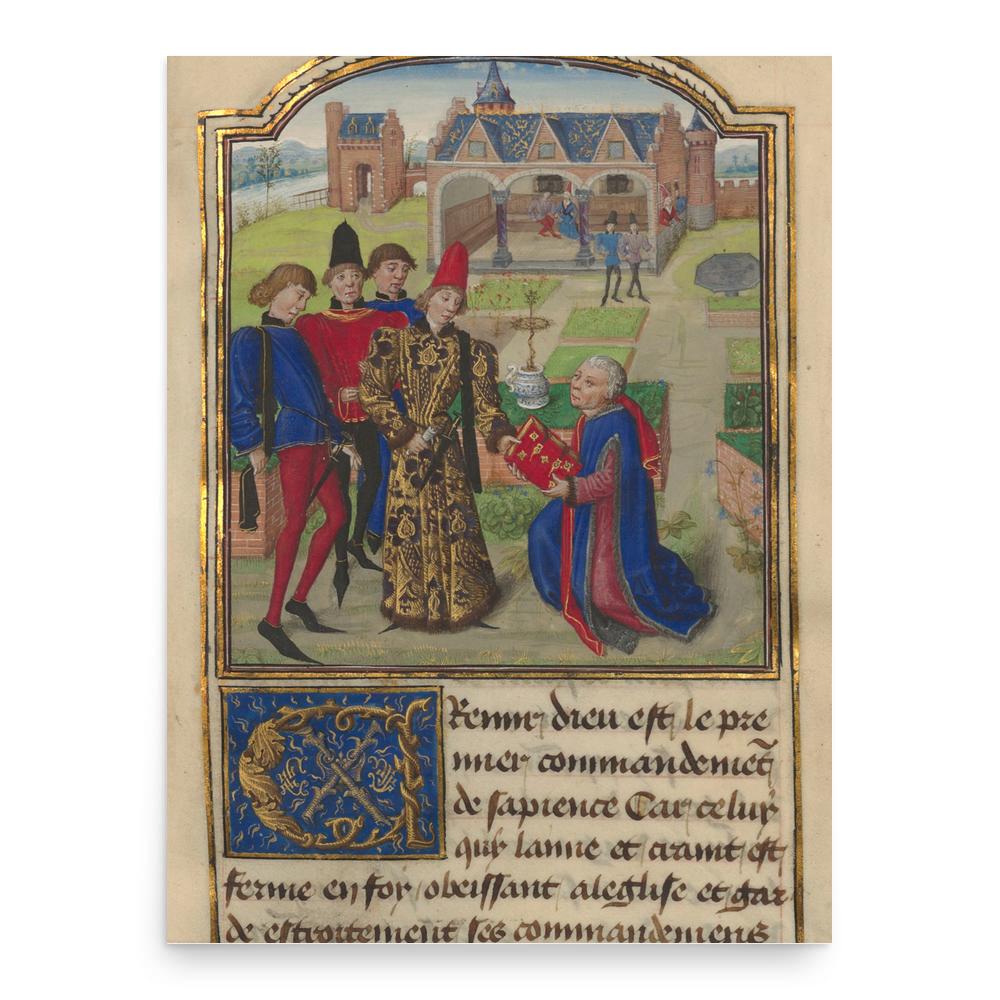 Cremir dieu est le pre
mier commandemẽt
de sapience Car celuy
quy laime et craint est
ferme en foy obeissant aleglise et gar
de estroitement ses commandemens